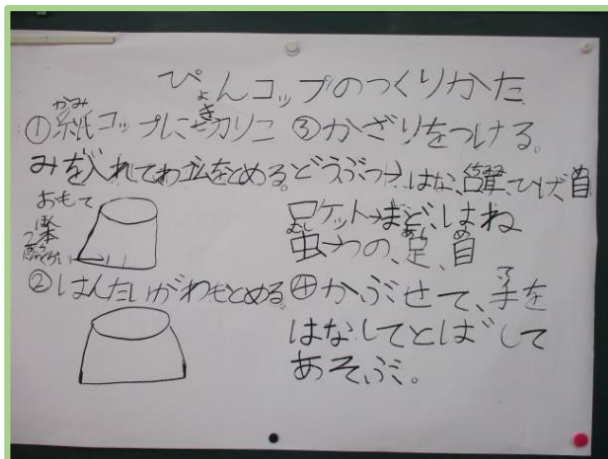 ぴょんコップのつくりかた
①紙コップに切りこ
みを入れてわゴムをとめる。
おもて
2本
②はんたいがわもとめる。
③かざりをつける。
どうぶつ→はな、ひげ、目
ロケット→まど、はね
虫→つの、足、目
④かぶせて、手を
はなしてとばして
あそぶ。